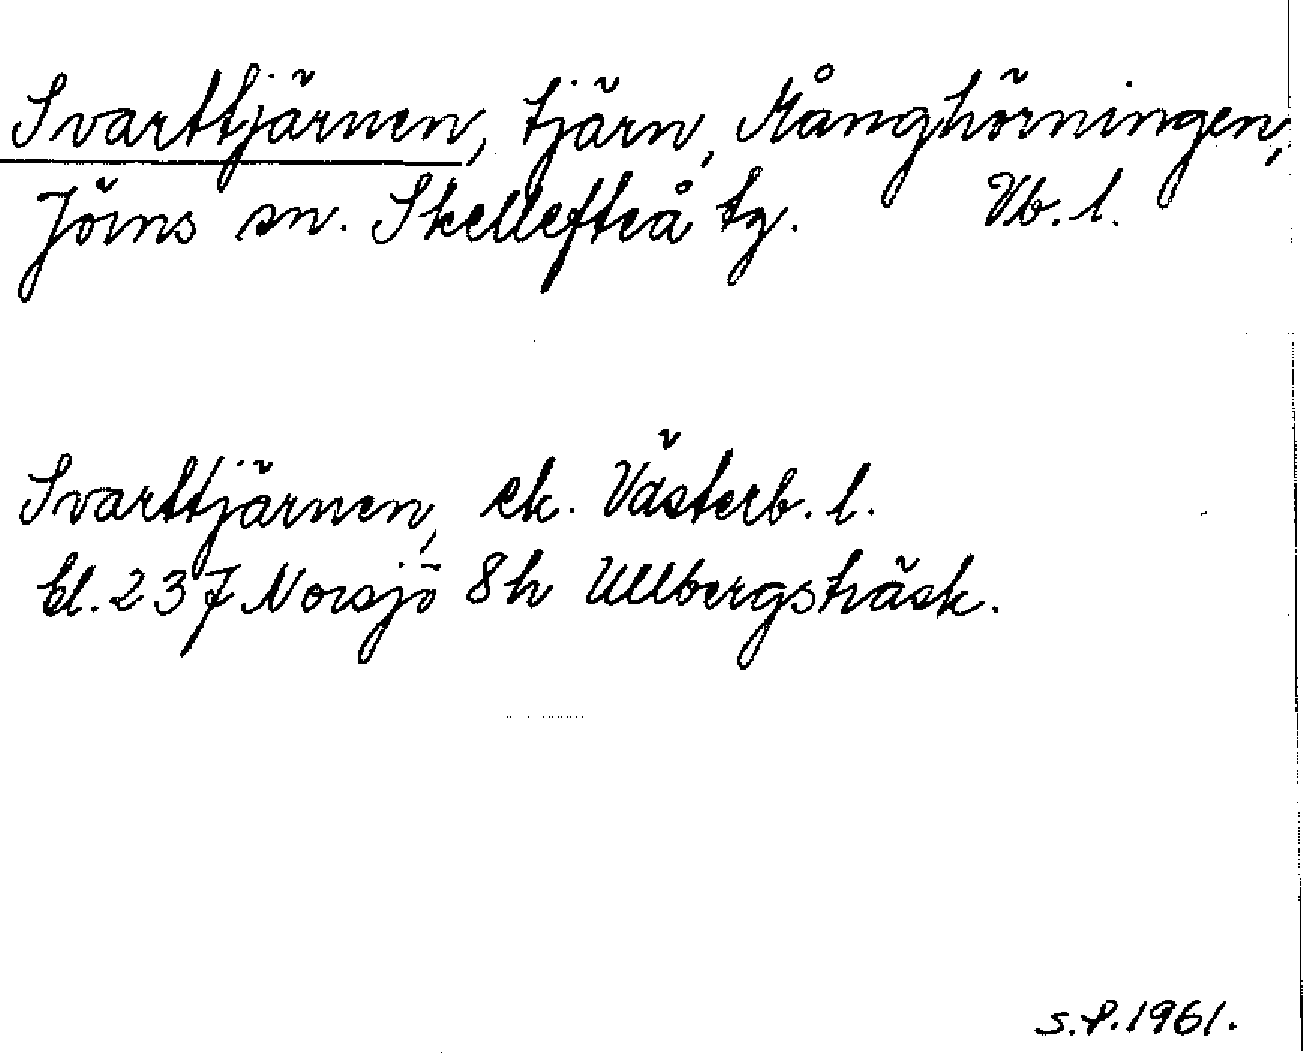 Svarttjärnen, tjärn, Långhörningen,
Jörns sn. Skellefteå tg. Vb. l.
Svarttjärnen, ek. Västerb. l.
bl. 237 Norsjö 8h Ullbergsträsk.
S.P. 1961.